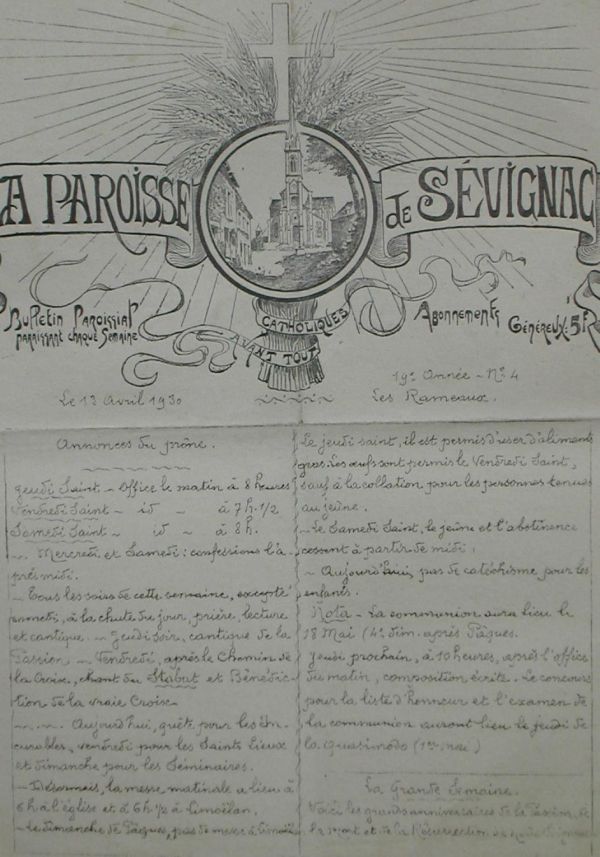 A PAROISSE DE SÉVIGNAC
Bulletin Paroissial
paraissant chaque Semaine
CATHOLIQUES
AVANT TOUT
Abonnements
Généreux: 5F
Le 13 Avril 1930
19e Année - No 4
Les Rameaux.
Annonces du prône.
Jeudi Saint - Office le matin à 8 heures
Vendredi Saint - id - à 7h. 1/2
Samedi Saint - id - à 8h.
- Mercredi et Samedi: confessions l'a-
près midi.
- Tous les soirs de cette semaine, excepté
samedi, à la chute du jour, prière, lecture
et cantique. - Jeudi soir, cantique de la
Passion - Vendredi, après le Chemin de
la Croix, chant du Stabat et Bénédic-
tion de la vraie Croix.
- Aujourd'hui, quête pour les In-
curables, vendredi pour les Saints Lieux
et dimanche pour les Séminaires.
- Désormais, la messe matinale a lieu à
6h à l'église et à 6h 1/2 à Limoëlan.
- Le dimanche de Pâques, pas de messe à Limoëlan
Le jeudi saint, il est permis d'user d'aliments
gras. Les œufs sont permis le Vendredi Saint,
sauf à la collation pour les personnes tenues
au jeûne.
- Le Samedi Saint, le jeûne et l'abstinence
cessent à partir de midi.
- Aujourd'hui, pas de catéchisme pour les
enfants.
Nota - La communion aura lieu le
18 Mai (4e dim. après Pâques.
Jeudi prochain, à 10 heures, après l'office
du matin, composition écrite. Le concours
pour la liste d'honneur et l'examen de
la communion auront lieu le jeudi de
la Quasimodo (1er mai)
La Grande Semaine.
Voici les grands anniversaires de la Passion, de
la Mort et de la Résurrection de